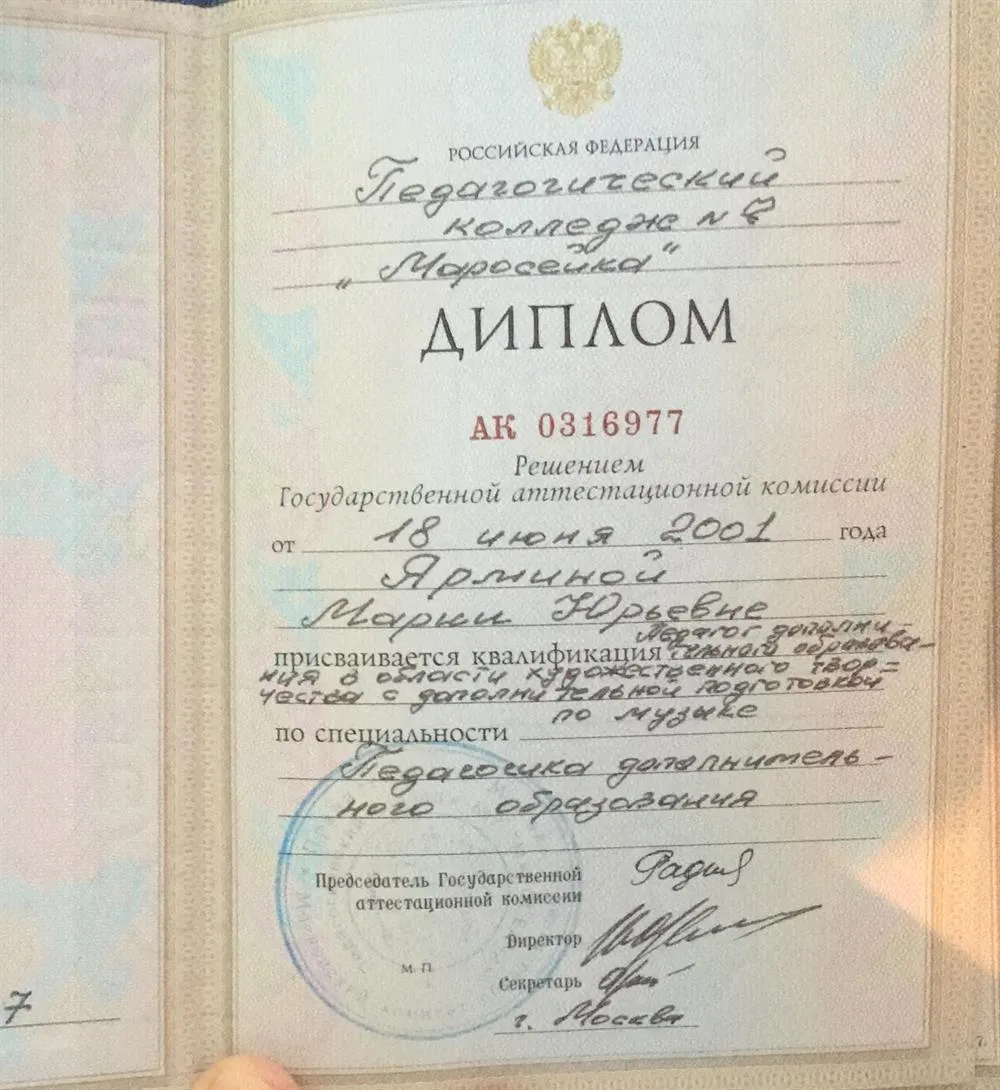 РОССИЙСКАЯ ФЕДЕРАЦИЯ
Педагогический
колледж № 7
„Маросейка"
ДИПЛОМ
АК 0316977
Решением
Государственной аттестационной комиссии
от 18 июня 2001 года
Ярминой
Марии Юрьевне
Педагог дополни-
присваивается квалификация тельного образова-
ния в области художественного твор=
чества с дополнительной подготовкой
по музыке
по специальности
Педагогика дополнитель-
ного образования
Председатель Государственной
аттестационной комиссии
Директор
М. П.
Секретарь
г. Москва
7